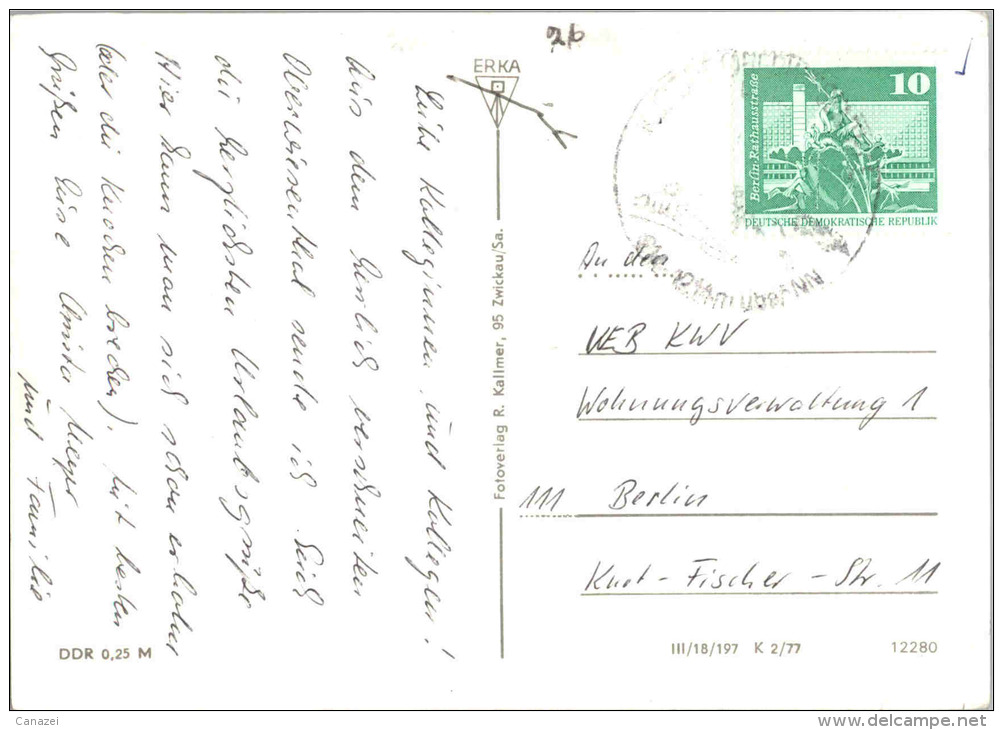 2b
ERKA
Liebe Kolleginnen und Kollegen!
Aus dem herrlich verschneiten
Oberwiesenthal sende ich Euch
die herzlichsten Urlaubsgrüße
Hier kann man sich schon erholen
(oder die Knochen brechen). Mit besten
Grüßen Eure Anita Meyer
und Familie
Fotoverlag R. Kallmer, 95 Zwickau/Sa.
DDR 0,25 M
10
Berlin, Rathausstraße
DEUTSCHE DEMOKRATISCHE REPUBLIK
An den
VEB KWV
Wohnungsverwaltung 1
111 Berlin
Kurt-Fischer-Str. 11
III/18/197 K 2/77
12280
Canazei
www.delcampe.net